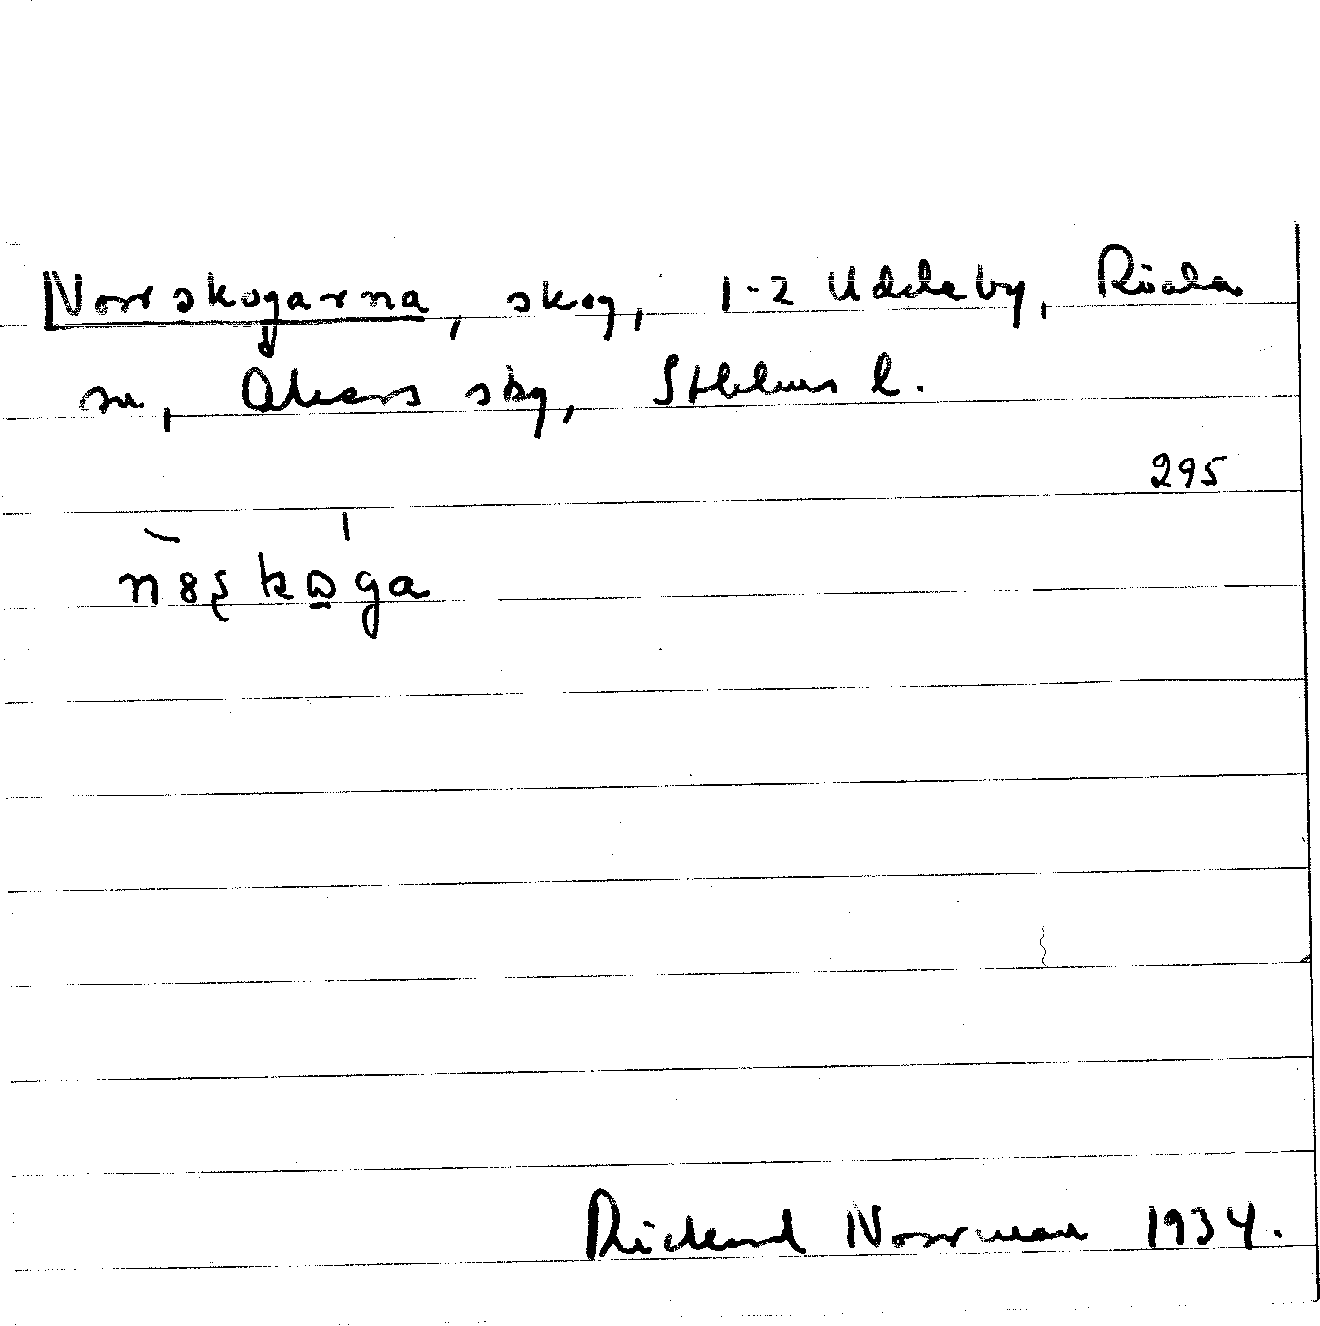 Norrskogarna, skog, 1-2 Uddeby, Riala
sn, Åkers skg, Sthlms l.
295
Rickard Norrman 1934.